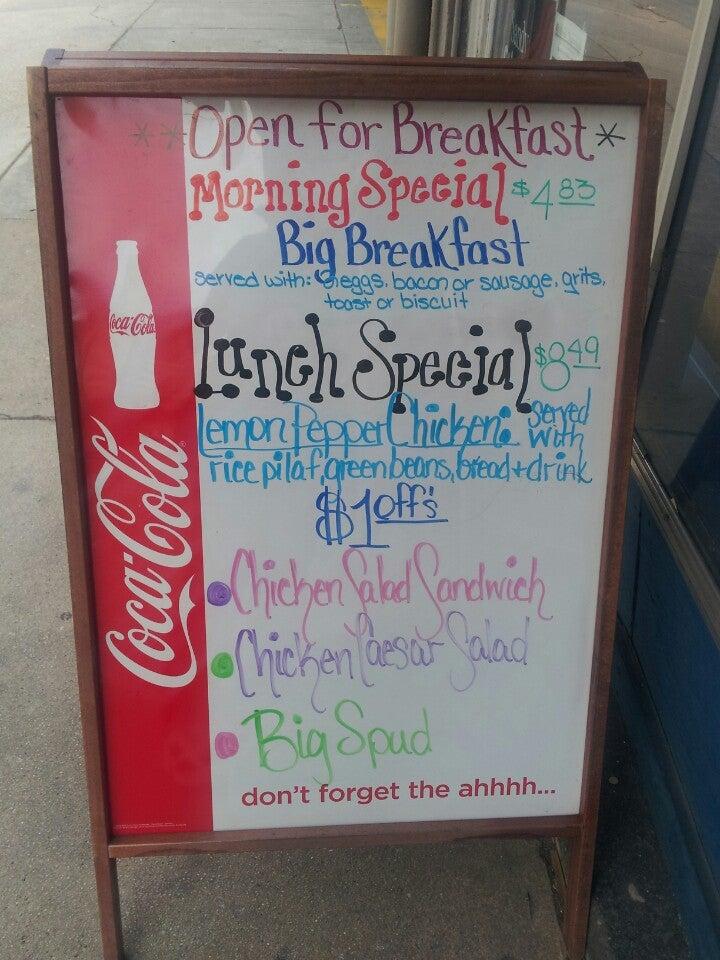 **Open for Breakfast*
Morning Special $4.83
Big Breakfast
served with: eggs, bacon or sausage, grits,
toast or biscuit
Lunch Special $8.49
Lemon Pepper Chicken: served with
rice pilaf, green beans, bread + drink
$1 off's
Chicken Salad Sandwich
Chicken Caesar Salad
Big Spud
don't forget the ahhhh...
Coca-Cola
Coca-Cola